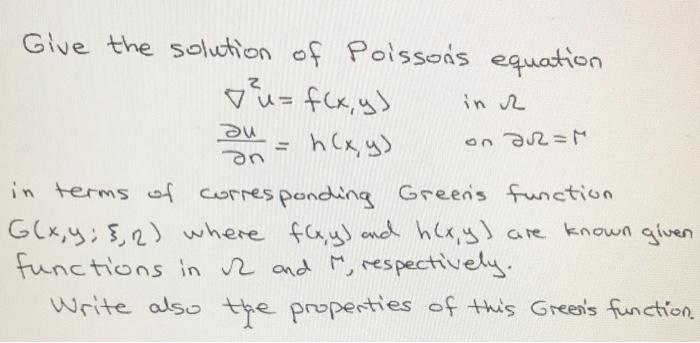 Give the solution of Poisson's equation
∇²u = f(x,y) in Ω
∂u/∂n = h(x,y) on ∂Ω = Γ
in terms of corresponding Green's function
G(x,y; ξ,η) where f(x,y) and h(x,y) are known given
functions in Ω and Γ, respectively.
Write also the properties of this Green's function.